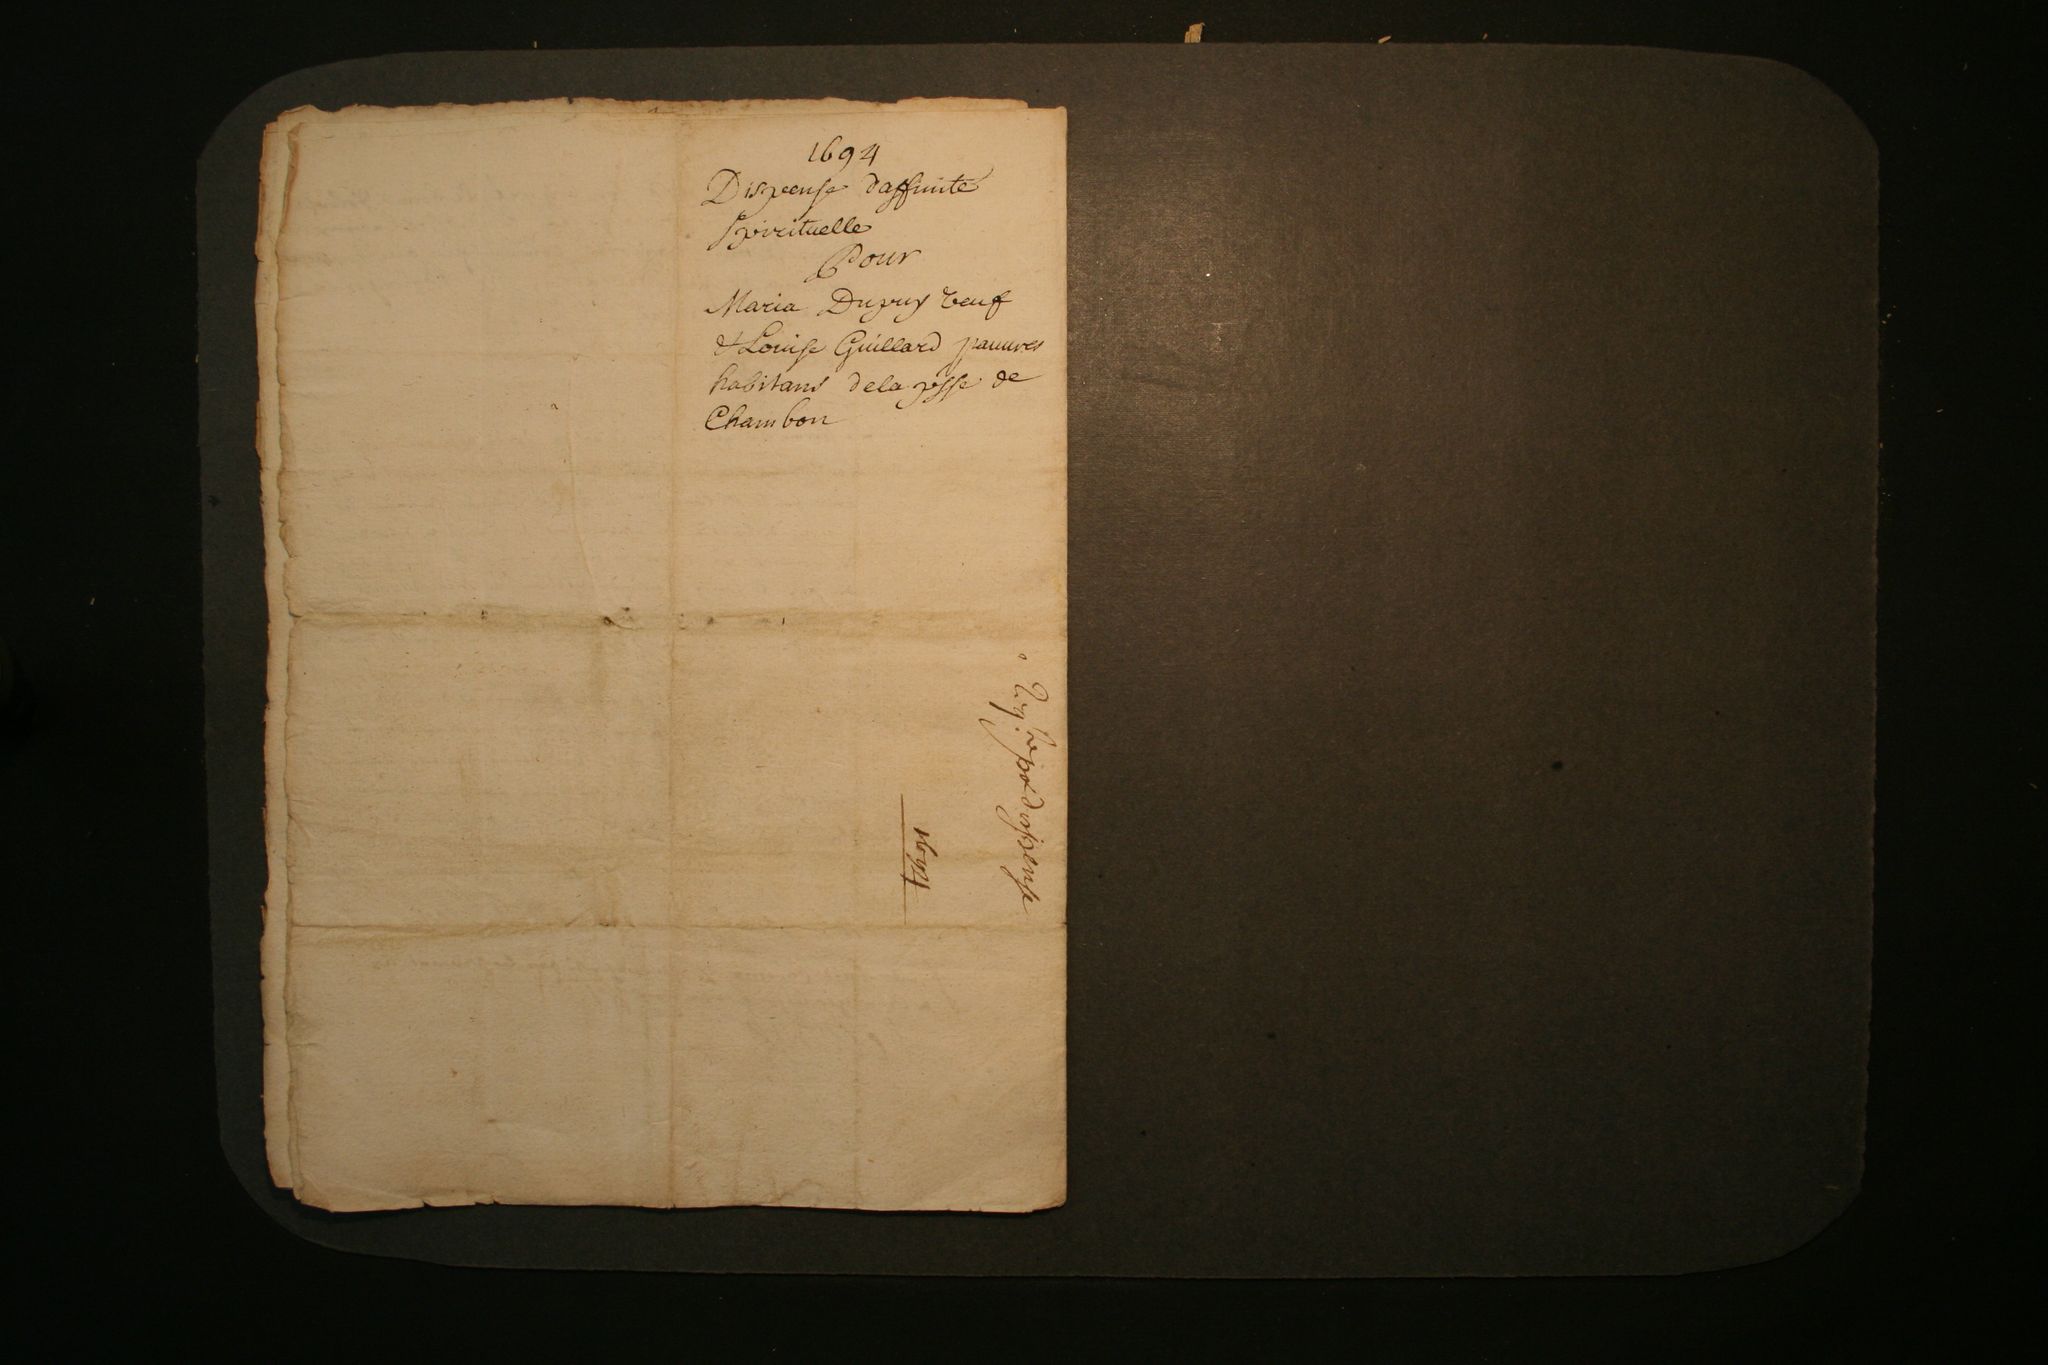 1694
Dispense daffinité
spirituelle
Pour
Maria Dupuy veuf
& Louise Guillard pauures
habitans dela psse de
Chambon
dispense
1694